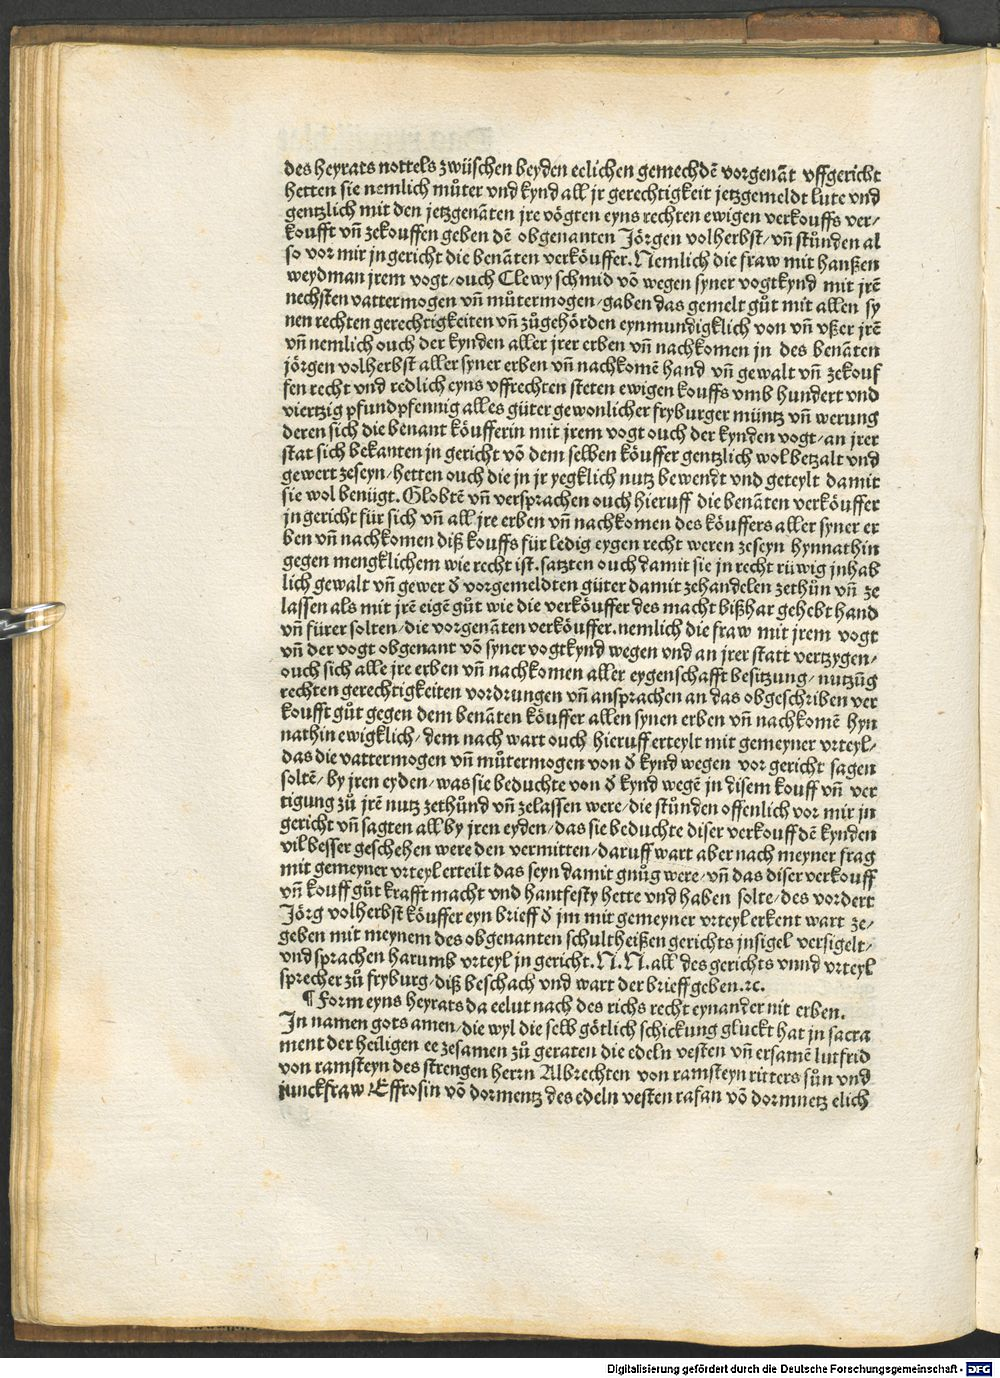 des heyrats nottels zwüschen beyden eelichen gemechdē vorgenāt vffgericht
hetten sie nemlich můter vnd kynd all jr gerechtigkeit jetzgemeldt lute vnd
gentzlich mit den jetzgenāten jre vögten eyns rechten ewigen verkouffs ver/
koufft vn̄ zekouffen geben dē obgenanten Jörgen volherbst/ vn̄ stůnden al
so vor mir jn gericht die benāten verköuffer. Nemlich die fraw mit hanßen
weydman jrem vogt/ ouch Clewy schmid vō wegen syner vogtkynd mit jrē
nechsten vattermogen vn̄ můtermogen/ gaben das gemelt gůt mit allen sy
nen rechten gerechtigkeiten vn̄ zůgehörden eynmundigklich von vn̄ vßer jrē
vn̄ nemlich ouch der kynden aller jrer erben vn̄ nachkomen jn des benāten
jörgen volherbst aller syner erben vn̄ nachkomē hand vn̄ gewalt vn̄ zekouf
fen recht vnd redlich eyns vffrechten steten ewigen kouffs vmb hundert vnd
viertzig pfundpfennig alles güter gewonlicher fryburger müntz vn̄ werung
deren sich die benant köufferin mit jrem vogt ouch der kynden vogt/ an jrer
stat sich bekanten jn gericht vō dem selben köuffer gentzlich wol betzalt vnd
gewert zeseyn/ hetten ouch die jn jr yegklich nutz bewendt vnd geteylt damit
sie wol benügt. Globtē vn̄ versprachen ouch hieruff die benāten verköuffer
jn gericht für sich vn̄ all jre erben vn̄ nachkomen des köuffers aller syner er
ben vn̄ nachkomen diß kouffs für ledig eygen recht weren zeseyn hynnathin
gegen mengklichem wie recht ist. satzten ouch damit sie jn recht rüwig jnhab
lich gewalt vn̄ gewer d̄ vorgemeldten güter damit zehandelen zethůn vn̄ ze
lassen als mit jrē eigē gůt wie die verköuffer des macht bißhar gehebt hand
vn̄ fürer solten/ die vorgenāten verköuffer. nemlich die fraw mit jrem vogt
vn̄ der vogt obgenant vō syner vogtkynd wegen vnd an jrer statt vertzygen/
ouch sich alle jre erben vn̄ nachkomen aller eygenschafft besitzung/ nutzūg
rechten gerechtigkeiten vordrungen vn̄ ansprachen an das obgeschriben ver
koufft gůt gegen dem benāten köuffer allen synen erben vn̄ nachkomē hyn
nathin ewigklich/ dem nach wart ouch hieruff erteylt mit gemeyner vrteyl/
das die vattermogen vn̄ můtermogen von d̄ kynd wegen vor gericht sagen
soltē/ by jren eyden/ was sie beduchte von d̄ kynd wegē jn disem kouff vn̄ ver
tigung zů jrē nutz zethůnd vn̄ zelassen were/ die stůnden offenlich vor mir jn
gericht vn̄ sagten all by jren eyden/ das sie beduchte diser verkouff dē kynden
vil besser geschehen were den vermitten/ daruff wart aber nach meyner frag
mit gemeyner vrteyl erteilt das seyn damit gnůg were/ vn̄ das diser verkouff
vn̄ kouff gůt krafft macht vnd hantfesty hette vnd haben solte/ des vordert
Jörg volherbst köuffer eyn brieff d̄ jm mit gemeyner vrteyl erkent wart ze/
geben mit meynem des obgenanten schultheißen gerichts jnsigel versigelt/
vnd sprachen harumb vrteyl jn gericht. N. N. all des gerichts vnnd vrteyl
sprecher zů fryburg/ diß beschach vnd wart der brieff geben.ꝛc.
¶ Form eyns heyrats da eelut nach des richs recht eynander nit erben.
In namen gots amen/ die wyl die selb götlich schickung gluckt hat jn sacra
ment der heiligen ee zesamen zů geraten die edeln vesten vn̄ ersamē lutfrid
von ramsteyn des strengen herrn Albrechten von ramsteyn ritters sůn vnd
junckfraw Effrosin vō dormentz des edeln vesten rafan vō dormnetz elich
Digitalisierung gefördert durch die Deutsche Forschungsgemeinschaft - DFG